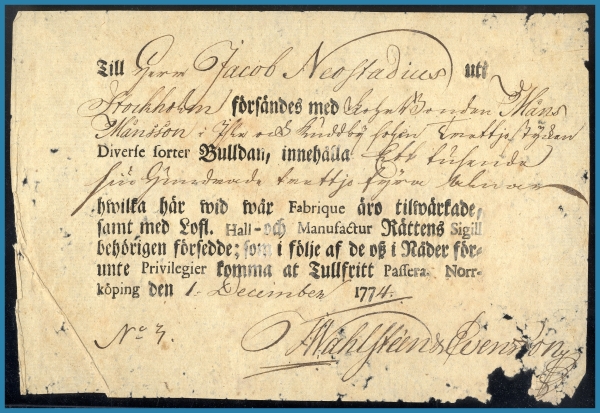 Till Herr Jacob Neostadius uti
Stockholm försändes med Bonden Måns
Månsson i och Kuddby sokn trettjo stycken
Diverse sorter Bulldan, innehålla Ett tusende
sju Hundrade trettjo fyra alnar
hwilka här wid wår Fabrique äro tillwärkade,
samt med Lofl. Hall- och Manufactur Rättens Sigill
behörigen försedde; som i följe af de oß i Nåder för-
unte Privilegier komma at Tullfritt Passera. Norr-
köping den 1. December 1774.
No 3. Wahlsteen & Svensson